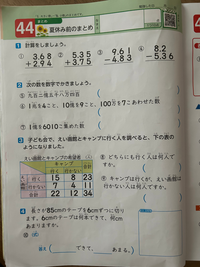 44
夏休み前のまとめ
1 計算をしましょう。
① 3.68 + 2.94
② 5.35 + 3.75
③ 9.61 - 4.83
④ 8.2 - 5.36
2 次の数を数字でかきましょう。
⑤ 九百二億五十八万四百
( )
⑥ 1兆を4こ、10億を9こ、100万を7こあわせた数
( )
⑦ 1億を6010こ集めた数
( )
3 子ども会で、えい画館とキャンプに行く人を調べると、下の表の
ようになりました。
えい画館とキャンプの希望者 (人)
キャンプ
合計
行く 行かない
行く 15 8 23
行かない 7 4 11
合計 22 12 34
⑧ どちらにも行く人は何人ですか。
( )
⑨ キャンプには行くが、えい画館は
行かない人は何人ですか。
( )
4 長さが85cmのテープを6cmずつに切り
ます。6cmのテープは何本できて、何cm
あまりますか。
答え できて、 あまる。